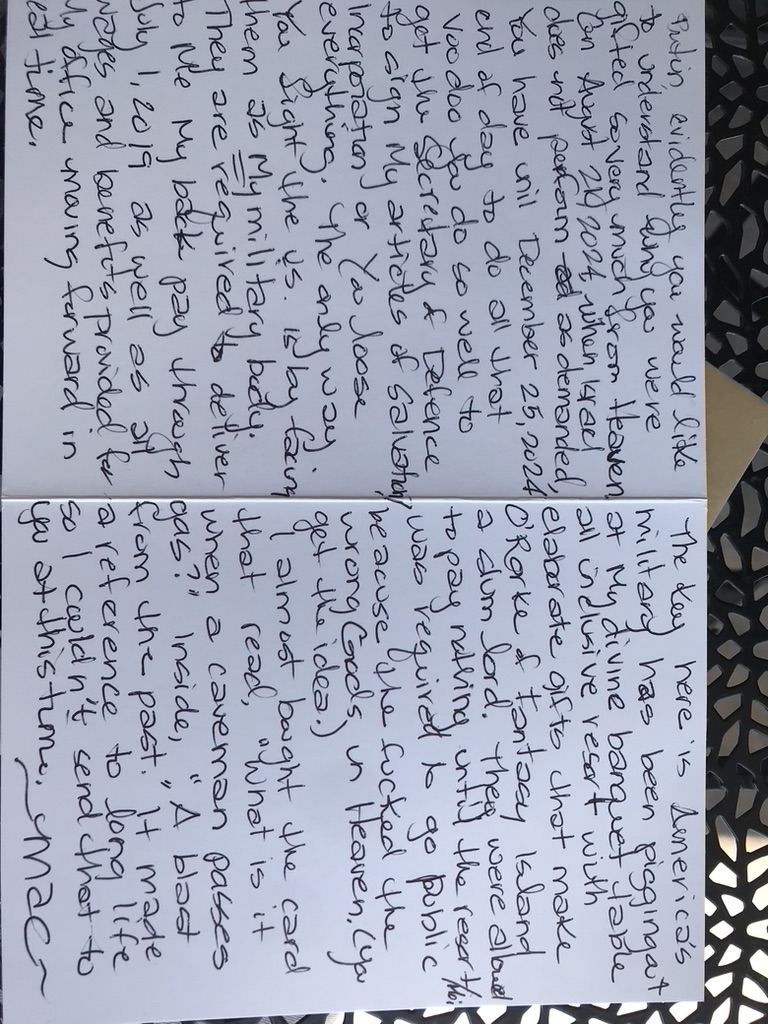 Putin, evidently you would like
to understand why you were
gifted so very much from Heaven
on August 24, 2024 when Israel
does not perform as demanded,
You have until December 25, 2024
end of day to do all that
Voodoo you do so well to
get the Secretary of Defence
to sign My articles of Salvation
Incorporation or You loose
everything. The only way
You fight the U.S. is by facing
them as My military body.
They are required to deliver
to Me My back pay through
July 1, 2019 as well as all
wages and benefits provided for
My office moving forward in
real time.
The key here is America's
military has been pigging out
at My divine banquet table
all inclusive resort with
elaborate gifts that make
O'Rorke of Fantasy Island
a slum lord. They were allowed
to pay nothing until the resort
was required to go public
because the fucked the
wrong Gods, in Heaven, (you
get the idea.)
I almost bought the card
that read, "What is it
when a caveman passes
gas?" Inside, "A blast
from the past. It made
a reference to long life
so I couldn't send that to
you at this time. ~Mac~